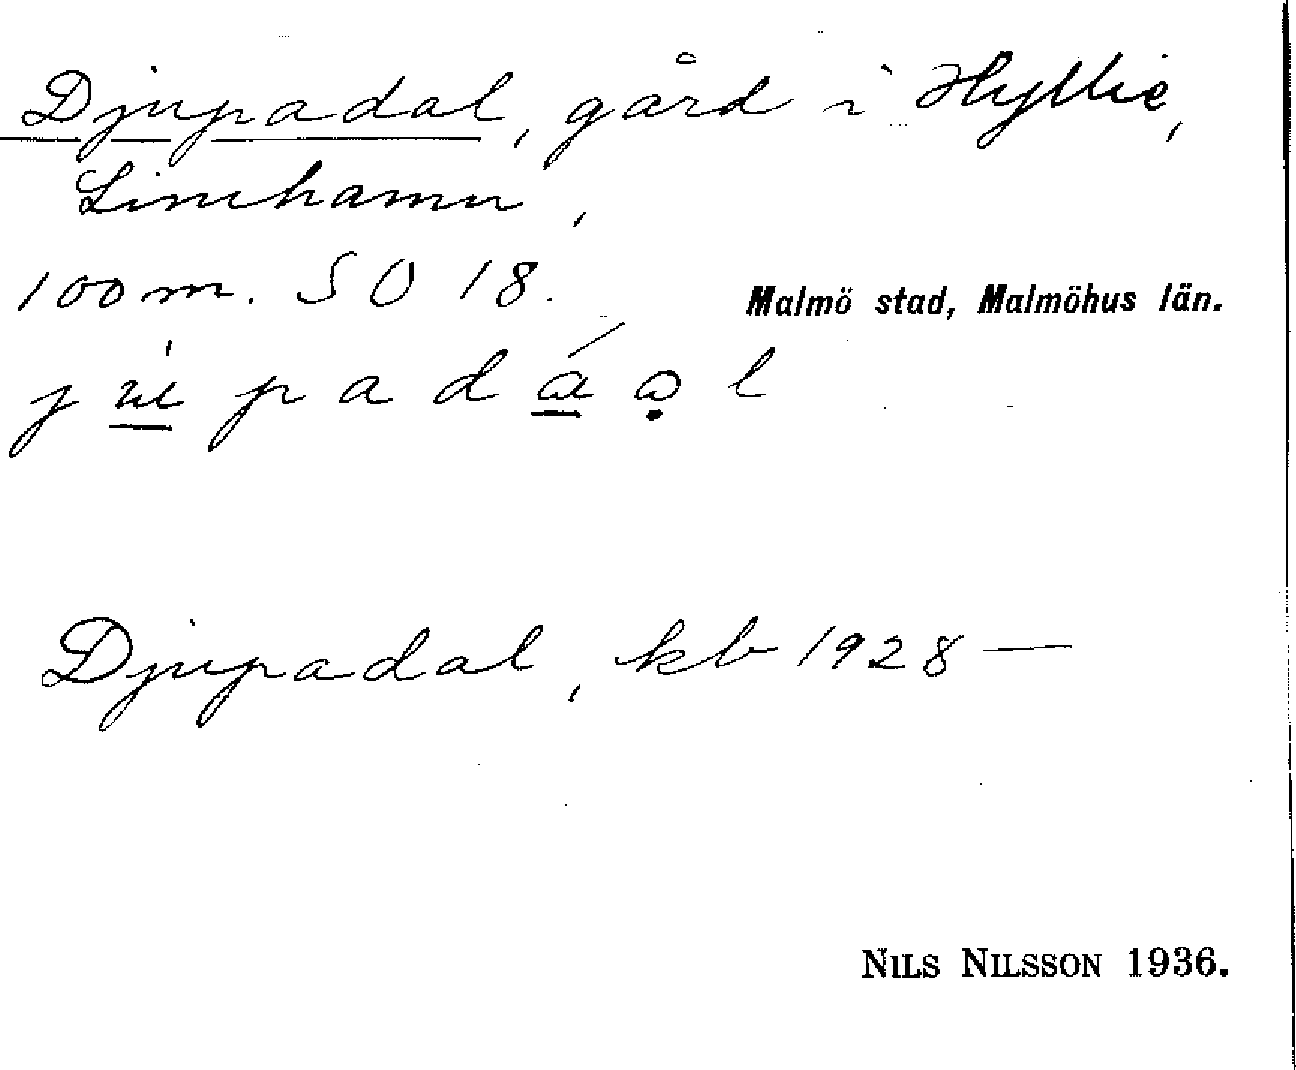 Djupadal, gård i Hyllie,
Limhamn,
100 m. SO 18.
Malmö stad, Malmöhus län.
Djupadal, kb 1928 —
NILS NILSSON 1936.